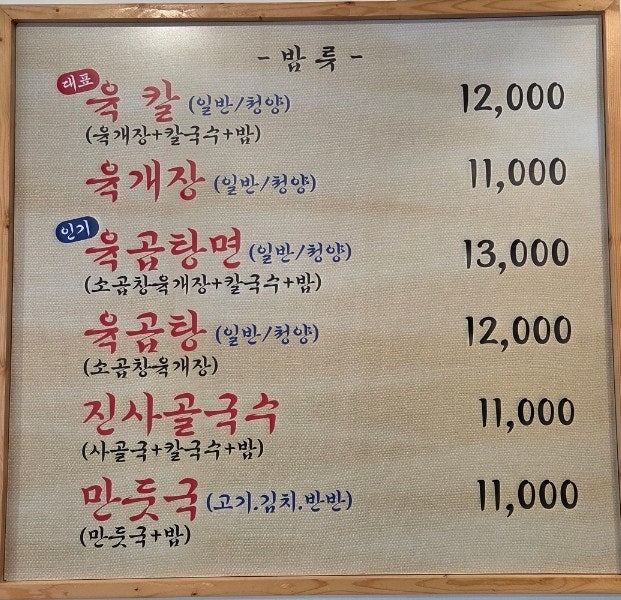 - 밥 류 -
대표
육 칼 (일반/청양) 12,000
(육개장+칼국수+밥)
육개장 (일반/청양) 11,000
인기
육곰탕면 (일반/청양) 13,000
(소곱창육개장+칼국수+밥)
육곰탕 (일반/청양) 12,000
(소곱창육개장)
진사골국수 11,000
(사골국+칼국수+밥)
만둣국 (고기.김치.반반) 11,000
(만둣국+밥)